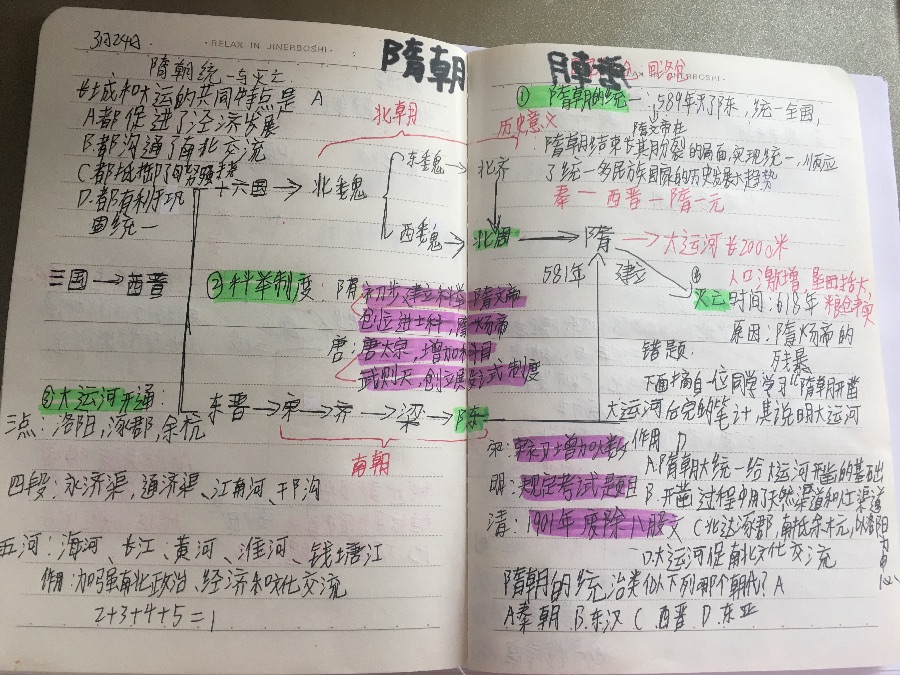 3月24日
· RELAX IN JINERBOSHI ·
隋朝
隋朝统一与灭亡
长城和大运的共同特点是 A
A都促进了泾济发展
B都沟通了南北交流
C都
D.都有利于巩
固统一
北朝
十六国→北魏
东魏→北齐
西魏→北周→隋→大运河长2000米
三国→西晋
581年 建立
②科举制度:
隋 初步建立科举 隋文帝
进士科,隋炀帝
唐:唐太宗,增加科目
武则天,创立殿试制度
③大运河开通:
三点:洛阳,涿郡,余杭
东晋→宋→齐→梁→陈
南朝
四段:永济渠,通济渠、江南河、邗沟
五河:海河、长江、黄河、淮河、钱塘江
作用:加强南北政治、经济和文化交流
2+3+4+5=1
①隋朝的统一:589年灭了陈,统一全国,
隋文帝在
历史意义
隋朝结束长其月分裂的局面,实现统一,顺应
了统一多民族国家的历史发展趋势
秦一西晋一隋一元
人口激增 垦田扩大,
灭亡时间:618年 粮仓丰实
原因:隋炀帝的
残暴
错题:
下面摘自一位同学学习“隋朝开凿
大运河
作用 D
A.隋朝大统一给大运河开凿的基础
B.开凿过程中用了天然渠道和
C北达涿郡,南抵余杭,以洛阳
为中心
D大运河促南北文化交流
宋:
增加人数
明:规定考试题目
清:1901年废除八股文
隋朝的统治类似下列哪个朝代? A
A秦朝 B.东汉 C.西晋 D.东亚